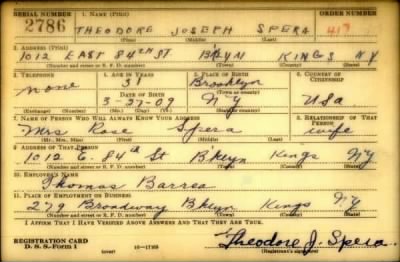 SERIAL NUMBER 1. NAME (Print) ORDER NUMBER
2786 THEODORE JOSEPH SPERA 417
(First) (Middle) (Last)
2. ADDRESS (Print)
1012 EAST 84TH ST BKLYN KINGS NY
(Number and street or R. F. D. number) (Town) (County) (State)
3. TELEPHONE 4. AGE IN YEARS 5. PLACE OF BIRTH 6. COUNTRY OF CITIZENSHIP
none 31 Brooklyn
DATE OF BIRTH (Town or county)
3-27-09 NY USA
(Exchange) (Number) (Mo.) (Day) (Yr.) (State or country)
7. NAME OF PERSON WHO WILL ALWAYS KNOW YOUR ADDRESS 8. RELATIONSHIP OF THAT PERSON
Mrs Rose Spera wife
(Mr., Mrs., Miss) (First) (Middle) (Last)
9. ADDRESS OF THAT PERSON
1012 E. 84th St Bklyn Kings NY
(Number and street or R. F. D. number) (Town) (County) (State)
10. EMPLOYER'S NAME
Thomas Barrea
11. PLACE OF EMPLOYMENT OR BUSINESS
279 Broadway Bklyn Kings NY
(Number and street or R. F. D. number) (Town) (County) (State)
I AFFIRM THAT I HAVE VERIFIED ABOVE ANSWERS AND THAT THEY ARE TRUE.
REGISTRATION CARD
D. S. S. Form 1 (over) Theodore J. Spera
(Registrant's signature)